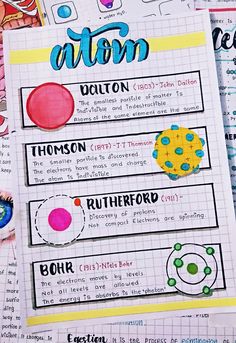 atom
DALTON (1803)- John Dalton
The smallest particle of matter is
indivisible and indestructible
Atoms of the same element are the same
THOMSON (1897)- J.J Thomson
The smaller particle is discovered
The electrons have mass and charge
The atom is indivisible
RUTHERFORD (1911)-
Discovery of protons
Not compact Electrons are spinning
BOHR (1913)- Niels Bohr
The electrons moves by levels
Not all levels are allowed
The energy is absorbs is the "photon"
Egestion